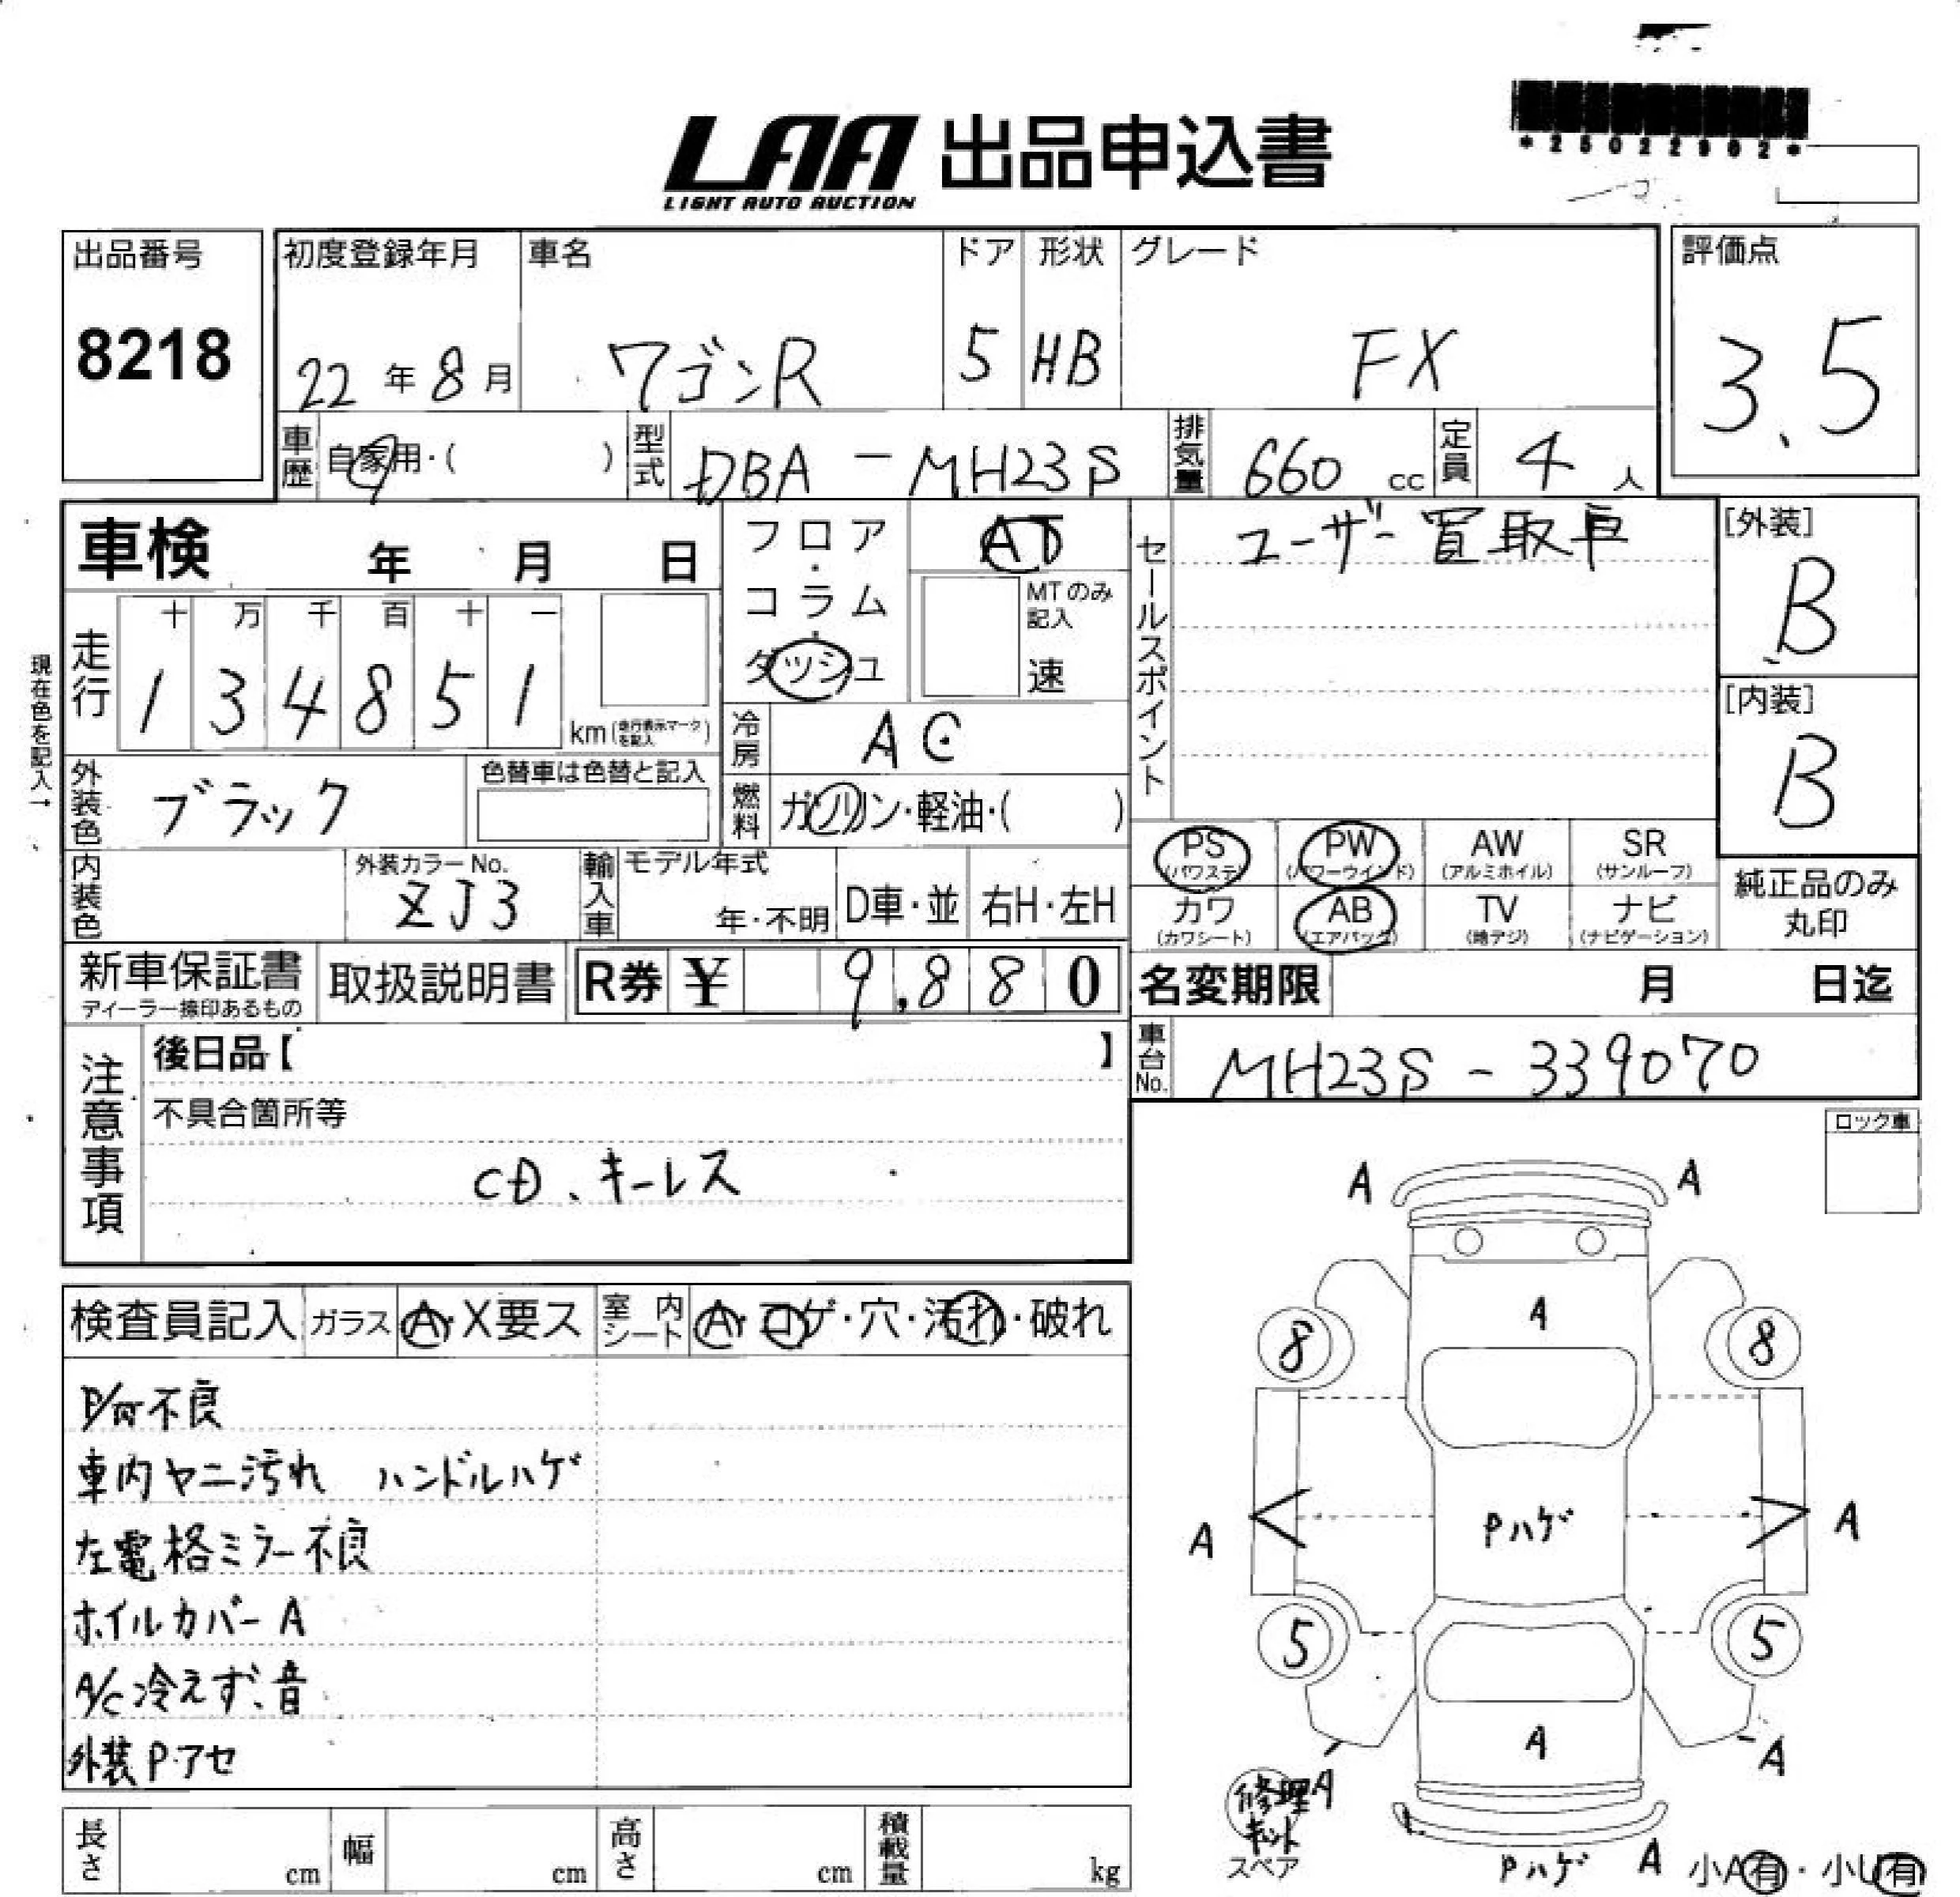 *25022902*
LAA 出品申込書
LIGHT AUTO AUCTION
出品番号
8218
初度登録年月
22年8月
車名
ワゴンR
ドア
5
形状
HB
グレード
FX
評価点
3.5
車歴 自家用・( )
型式 DBA-MH23S
排気量 660 cc
定員 4人
車検 年 月 日
フロア・コラム・ダッシュ
AT
MTのみ記入
速
セールスポイント
ユーザー買取車
[外装]
B
[内装]
B
現在色を記入→
走行
十 万 千 百 十 一
1 3 4 8 5 1
km(走行表示マークを記入)
冷房 AC
外装色 ブラック
色替車は色替と記入
燃料 ガソリン・軽油・( )
内装色
外装カラーNo.
ZJ3
輸入車
モデル年式
年・不明
D車・並
右H・左H
PS (パワステ)
PW (パワーウインド)
AW (アルミホイル)
SR (サンルーフ)
カワ (カワシート)
AB (エアバッグ)
TV (地デジ)
ナビ (ナビゲーション)
純正品のみ
丸印
新車保証書
ディーラー捺印あるもの
取扱説明書
R券 ¥ 9,880
名変期限 月 日迄
車台No. MH23S-339070
注意事項
後日品【 】
不具合箇所等
CD、キーレス
ロック車
検査員記入
ガラス A・X要ス
室内シート A・コゲ・穴・汚れ・破れ
不良
車内ヤニ汚れ ハンドルハゲ
左電格ミラー不良
ホイルカバーA
A/C冷えず、音
外装P.アセ
A A
A
8 8
A Pハゲ A
5 5
A
A A
修理キット
スペア
Pハゲ A
小A有・小U有
長さ cm
幅 cm
高さ cm
積載量 kg